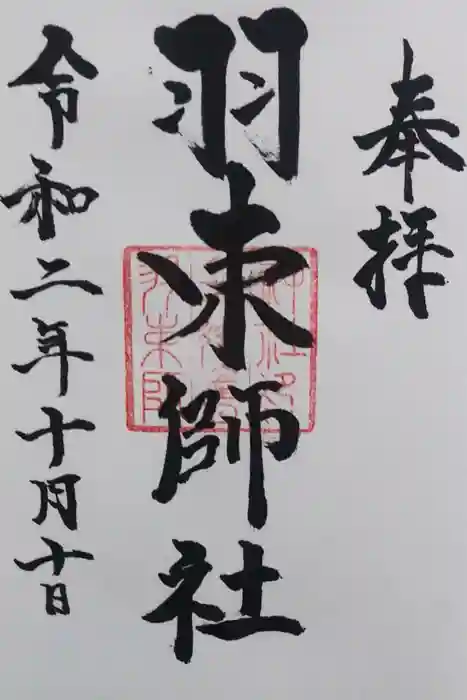 奉拝
羽束師社
令和二年十月十日